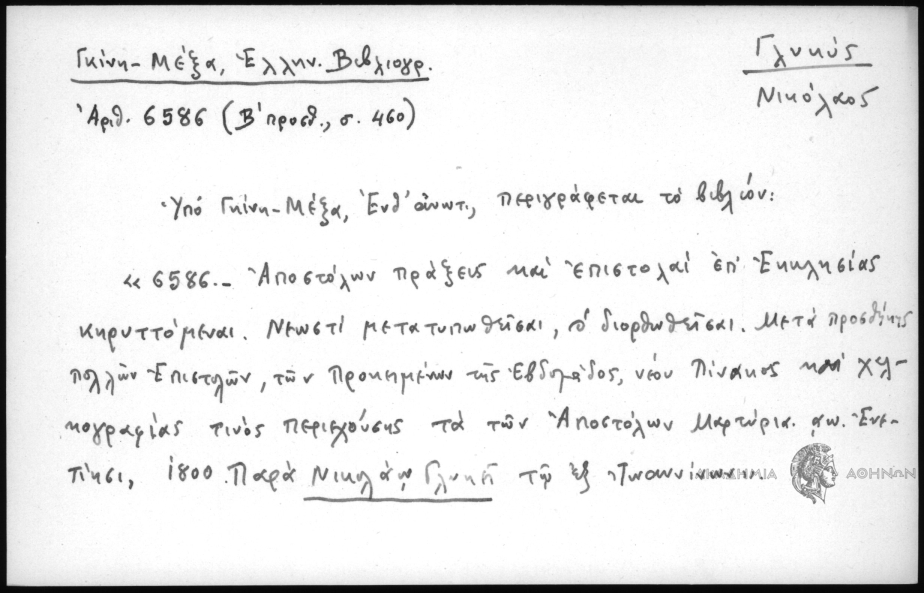 Γκίνη-Μέξα, Ἑλλην. Βιβλιογρ.
Γλυκύς
Νικόλαος
Ἀριθ. 6586 (Β' προσθ., σ. 460)
Ὑπό Γκίνη-Μέξα, Ἔνθ' ἀνωτ., περιγράφεται τό βιβλίον:
« 6586.- Ἀποστόλων πράξεις καί ἐπιστολαί ἐπ' Ἐκκλησίας
κηρυττόμεναι. Νεωστί μετατυπωθεῖσαι, διορθωθεῖσαι. Μετά προσθήκης
πολλῶν Ἐπιστολῶν, τῶν Προκειμένων τῆς Ἑβδομάδος, νέου Πίνακος καί χαλ-
κογραφίας τινός περιεχούσης τά τῶν Ἀποστόλων Μαρτύρια. αω. Ἐνε-
τίησι, 1800. Παρά Νικολάῳ Γλυκεῖ τῷ ἐξ Ἰωαννίνων».
ΑΚΑΔΗΜΙΑ ΑΘΗΝΩΝ